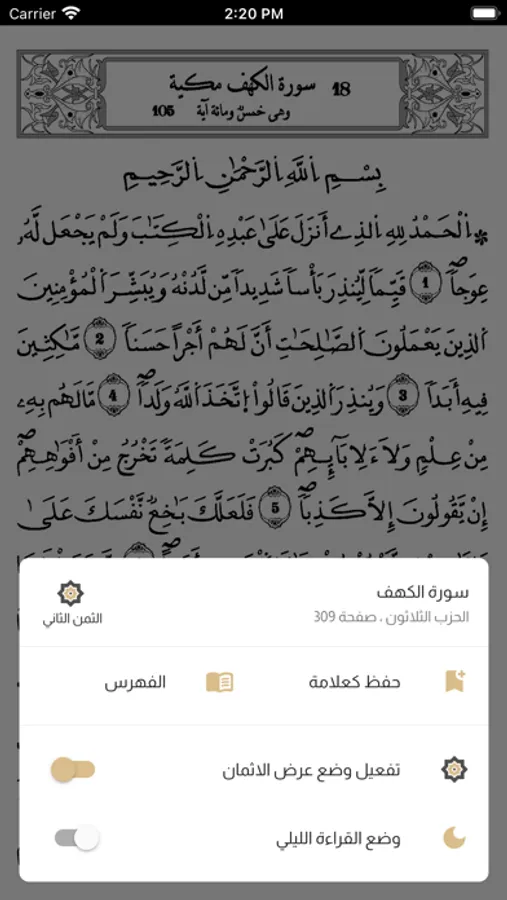 Carrier 2:20 PM
18 سورة الكهف مكية
وهي خمس ومائة آية 105
بِسْمِ اِ۬للَّهِ اِ۬لرَّحْمَٰنِ اِ۬لرَّحِيمِ
اَ۬لْحَمْدُ لِلهِ اِ۬لذِےٓ أَنزَلَ عَلَىٰ عَبْدِهِ اِ۬لْكِتَٰبَ وَلَمْ يَجْعَل لَّهُۥ
عِوَجاٗۖ 1 قَيِّماٗ لِّيُنذِرَ بَأْساٗ شَدِيداٗ مِّن لَّدُنْهُ وَيُبَشِّرَ اَ۬لْمُؤْمِنِينَ
اَ۬لذِينَ يَعْمَلُونَ اَ۬لصَّٰلِحَٰتِ أَنَّ لَهُمْ أَجْراً حَسَناٗ 2 مَّٰكِثِينَ
فِيهِ أَبَداٗ 3 وَيُنذِرَ اَ۬لذِينَ قَالُواْ اُ۪تَّخَذَ اَ۬للَّهُ وَلَداٗۖ 4 مَّا لَهُم بِهِۦ
مِنْ عِلْمٖ وَلَا ءَلِابَآئِهِمْۖ كَبُرَتْ كَلِمَةٗ تَخْرُجُ مِنْ أَفْوَٰهِهِمْۖ
إِنْ يَّقُولُونَ إِلَّا كَذِباٗۖ 5 فَلَعَلَّكَ بَٰخِعٞ نَّفْسَكَ عَلَىٰٓ
سورة الكهف
الحزب الثلاثون ، صفحة 309
الثمن الثاني
حفظ كعلامة
الفهرس
تفعيل وضع عرض الاثمان
وضع القراءة الليلي